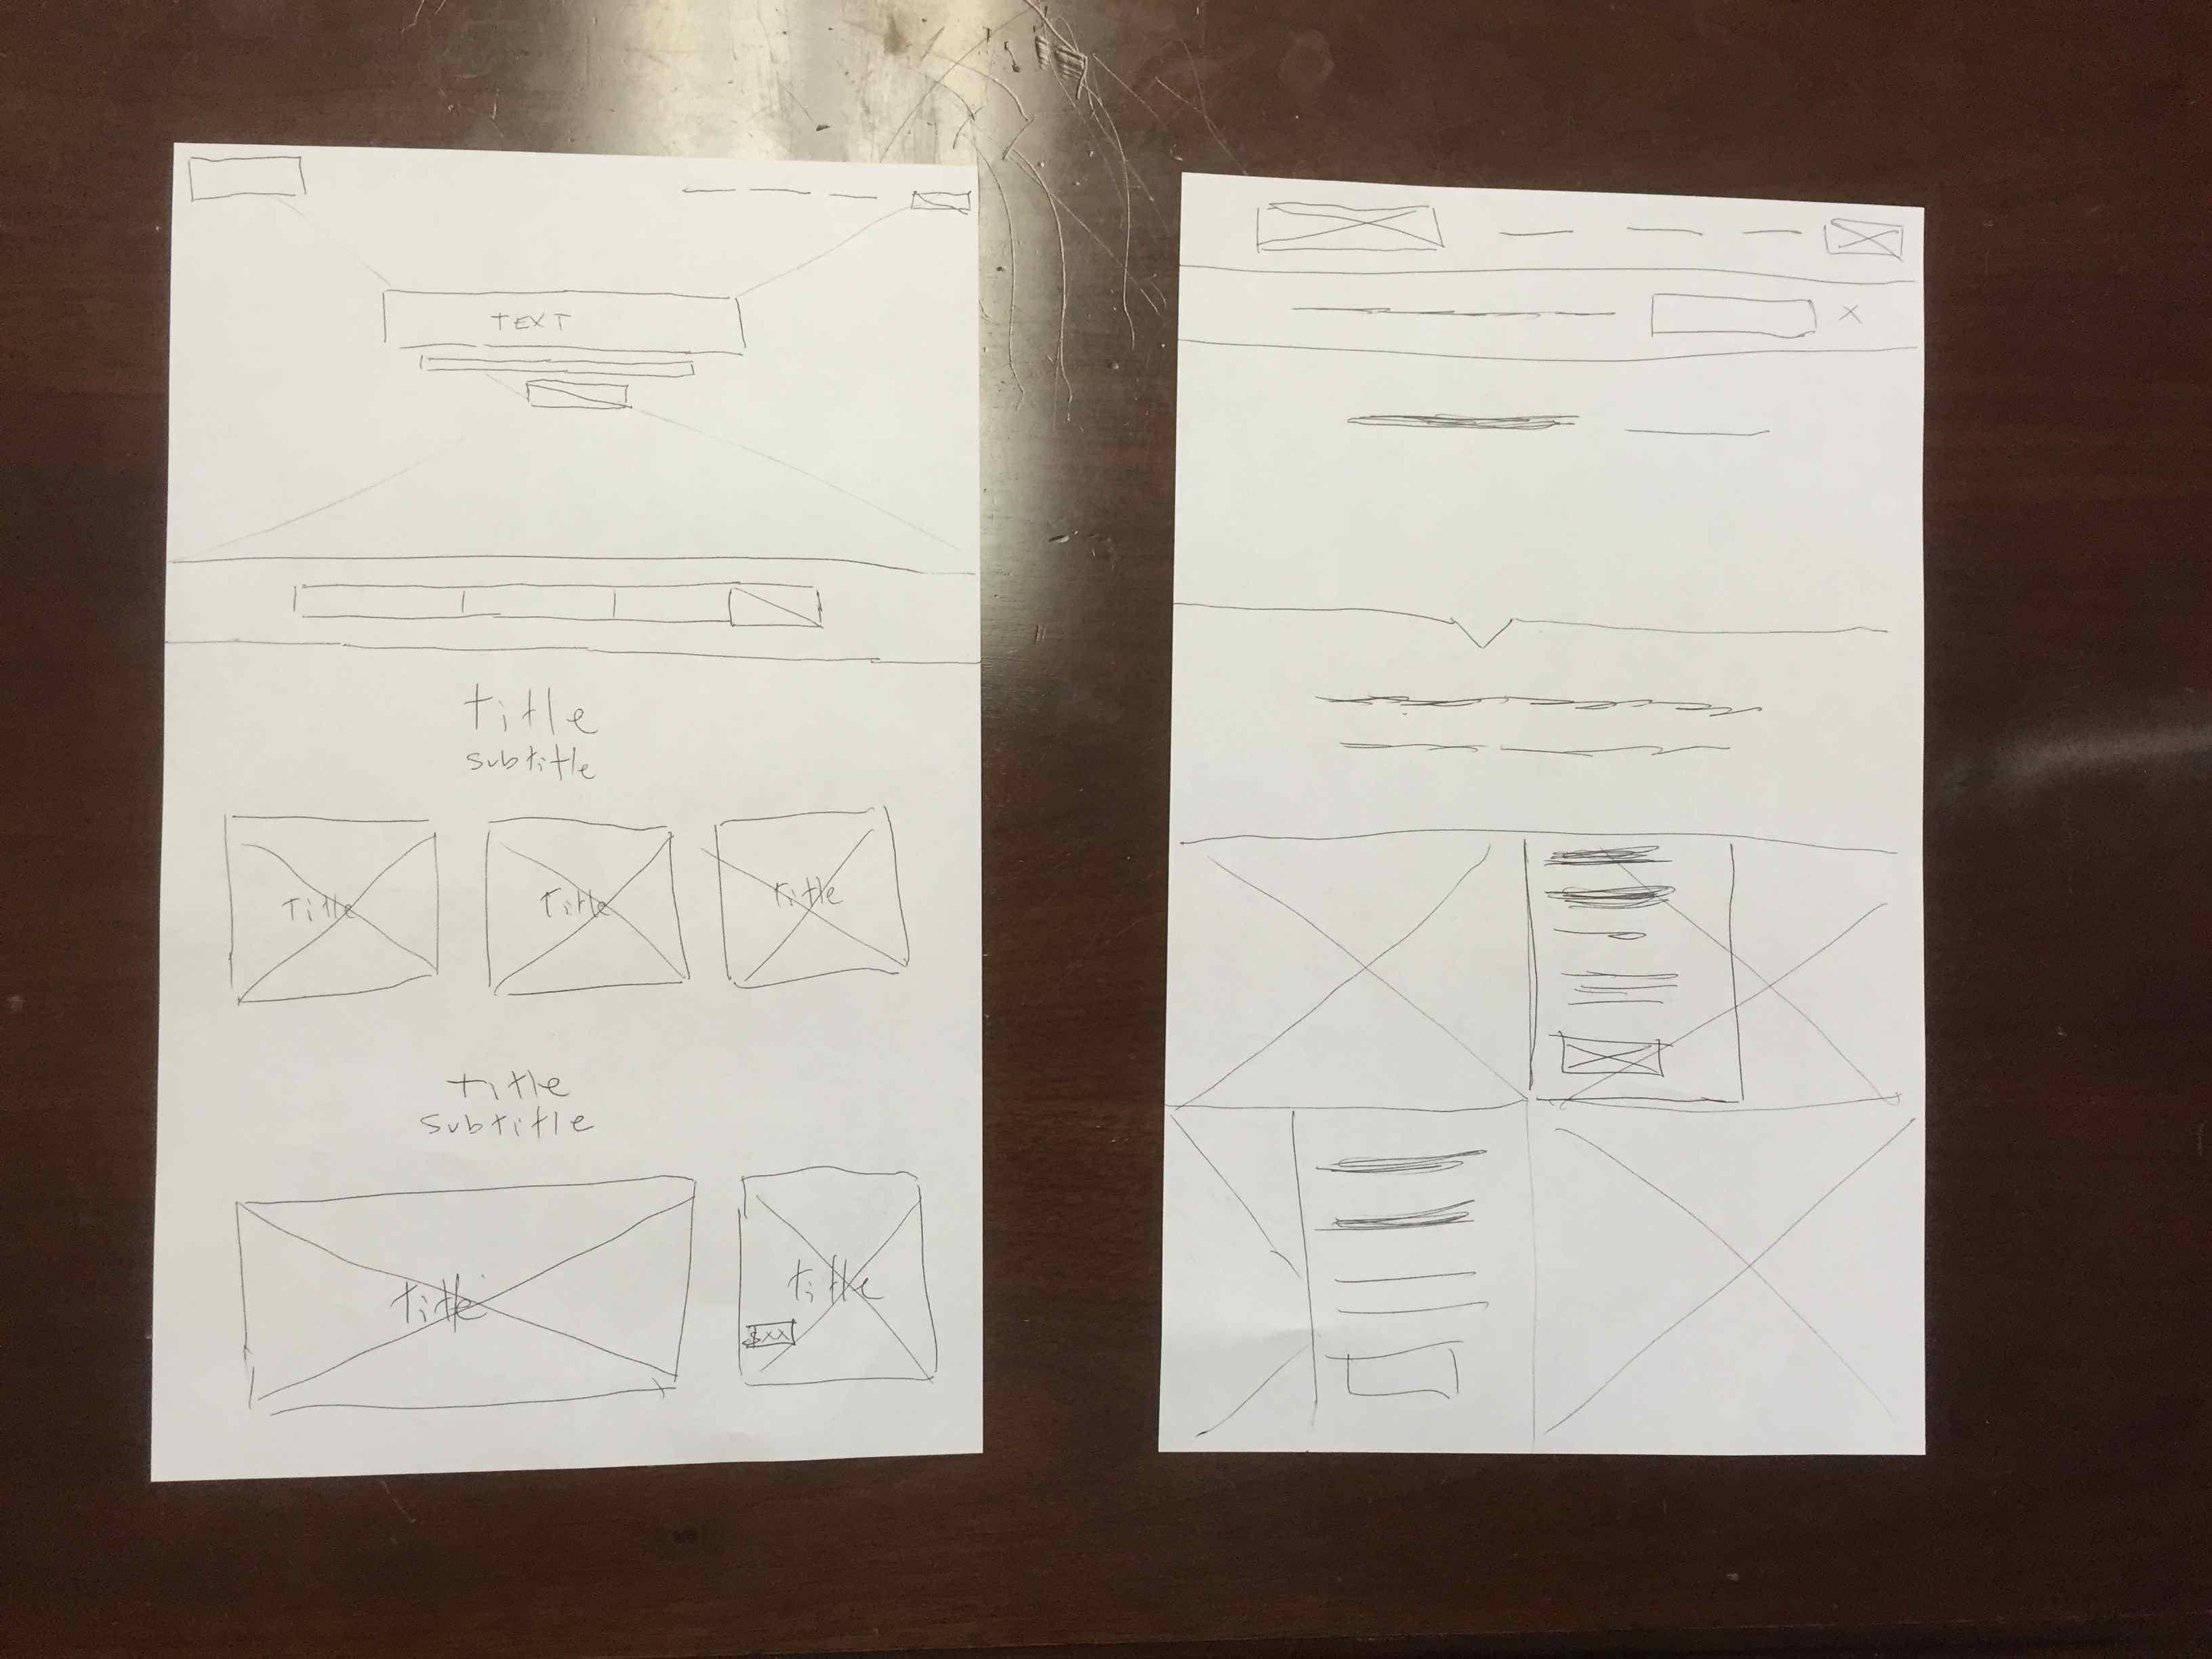 TEXT
title
subtitle
Title
Title
Title
title
subtitle
title
title
$XX
X